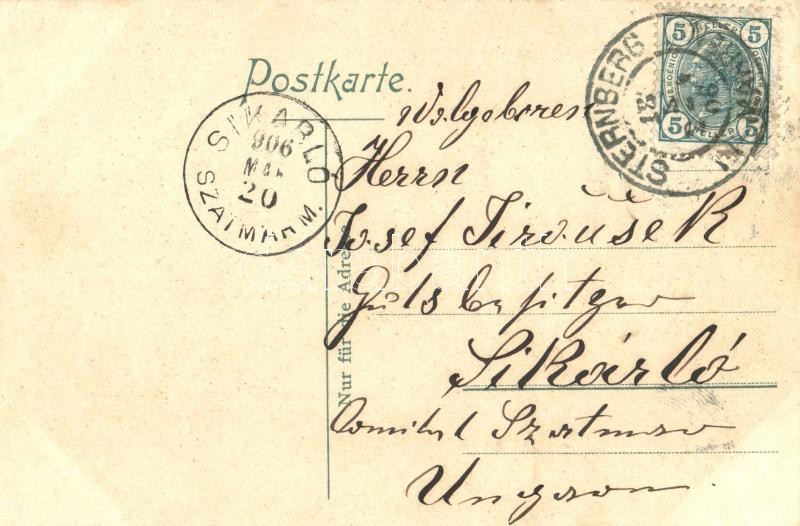 Postkarte.
SIKÁRLÓ
906
MÁR
20
SZATMÁR M.
STERNBERG
5 HELLER 5
5 HELLER 5
Wolgeboren
Herrn
Josef Jiroušek
Gutsbesitzer
Sikárló
Comitat Szatmar
Ungarn.
Nur für die Adresse